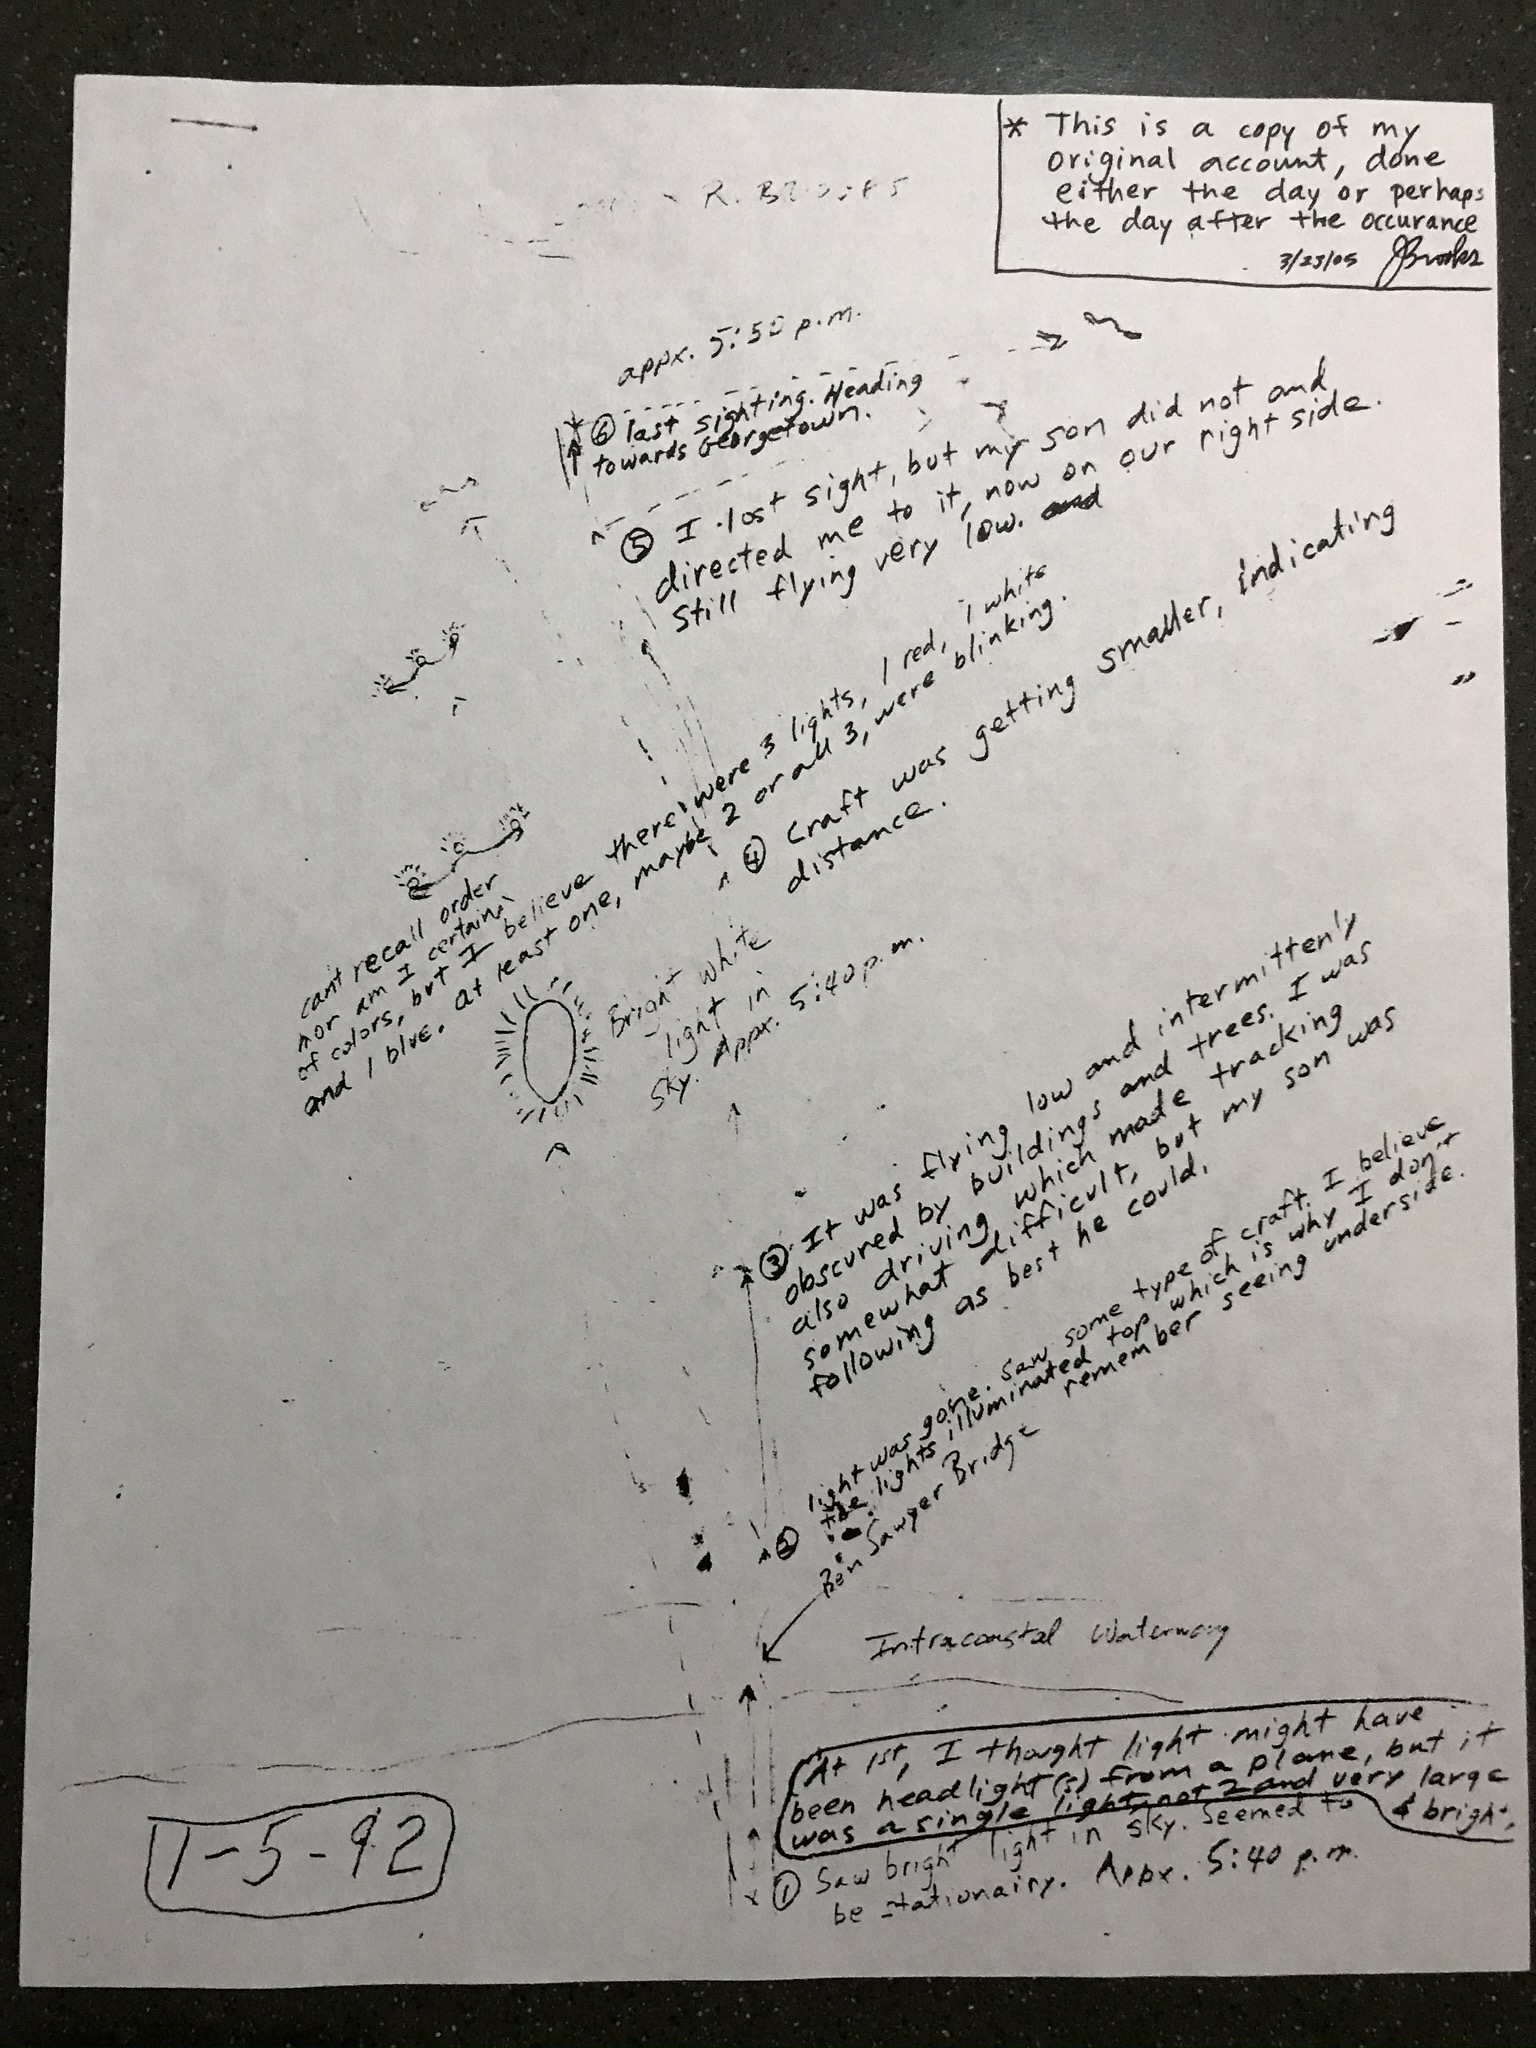 * This is a copy of my
original account, done
either the day or perhaps
the day after the occurance
3/23/05 JBrooks
R.
appx. 5:50 p.m.
⑥ last sighting. Heading
towards Georgetown.
⑤ I lost sight, but my son did not and
directed me to it, now on our right side.
Still flying very low. and
④ Craft was getting smaller, indicating
distance.
cant recall order
nor am I certain
of colors, but I believe there were 3 lights, 1 red, 1 white
and 1 blue. at least one, maybe 2 or all 3, were blinking.
Bright white
light in
sky. Appx. 5:40 p.m.
③ It was flying low and intermittenly
obscured by buildings and trees. I was
also driving which made tracking
somewhat difficult, but my son was
following as best he could.
② light was gone. Saw some type of craft. I believe
the lights illuminated top which is why I don't
remember seeing underside.
Ben Sawyer Bridge
Intracoastal Waterway
At 1st, I thought light might have
been headlight(s) from a plane, but it
was a single light, not 2 and very large
& bright.
① Saw bright light in sky. Seemed to
be stationairy. Appx. 5:40 p.m.
1-5-92